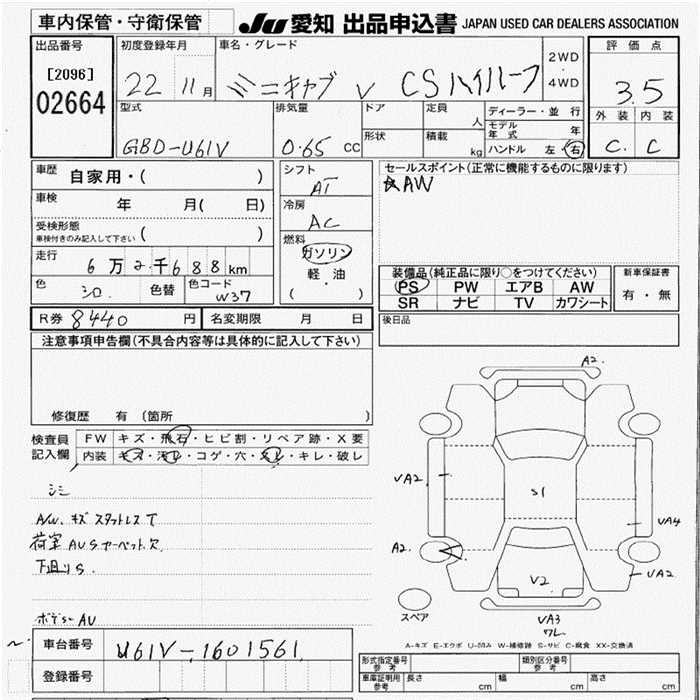 車内保管・守衛保管
JU 愛知 出品申込書 JAPAN USED CAR DEALERS ASSOCIATION
出品番号
[2096]
02664
初度登録年月
22 11月
車名・グレード
ミニキャブ V CSハイルーフ
2WD
4WD
評価点
3.5
外装 内装
C. C
型式
GBD-U61V
排気量
0.65 CC
ドア
形状
定員
人
積載
kg
ディーラー・並行
モデル年式 年
ハンドル 左・右
車歴 自家用・( )
車検 年 月( 日)
受検形態
車検付きのみ記入して下さい ( )
走行 6万2千688km
色 シロ 色替 色コード W37
シフト
AT
冷房
AC
燃料
ガソリン
軽・油
( )
セールスポイント(正常に機能するものに限ります)
AW
装備品(純正品に限り○をつけてください)
PS PW エアB AW
SR ナビ TV カワシート
新車保証書
有・無
R券 8440 円 名変期限 月 日
後日品
注意事項申告欄(不具合内容等は具体的に記入して下さい)
修復歴 有(箇所 )
検査員記入欄
FW キズ・飛石・ヒビ割・リペア跡・X要
内装 キズ・汚れ・コゲ・穴・スレ・キレ・破レ
シミ
A/W. キズ スタットレス T
荷室 AU S カーペット欠
下廻り S.
ボデー AU
A2.
VA2.
S1
VA4
A2.
VA2
V2
VA3
ワレ
スペア
A-キズ E-エクボ U-凹み W-補修跡 S-サビ C-腐食 XX-交換済
車台番号 U61V-1601561
登録番号
型式指定番号 参考
類別区分番号 参考
車庫証明用 参考 長さ cm 幅 cm 高さ cm